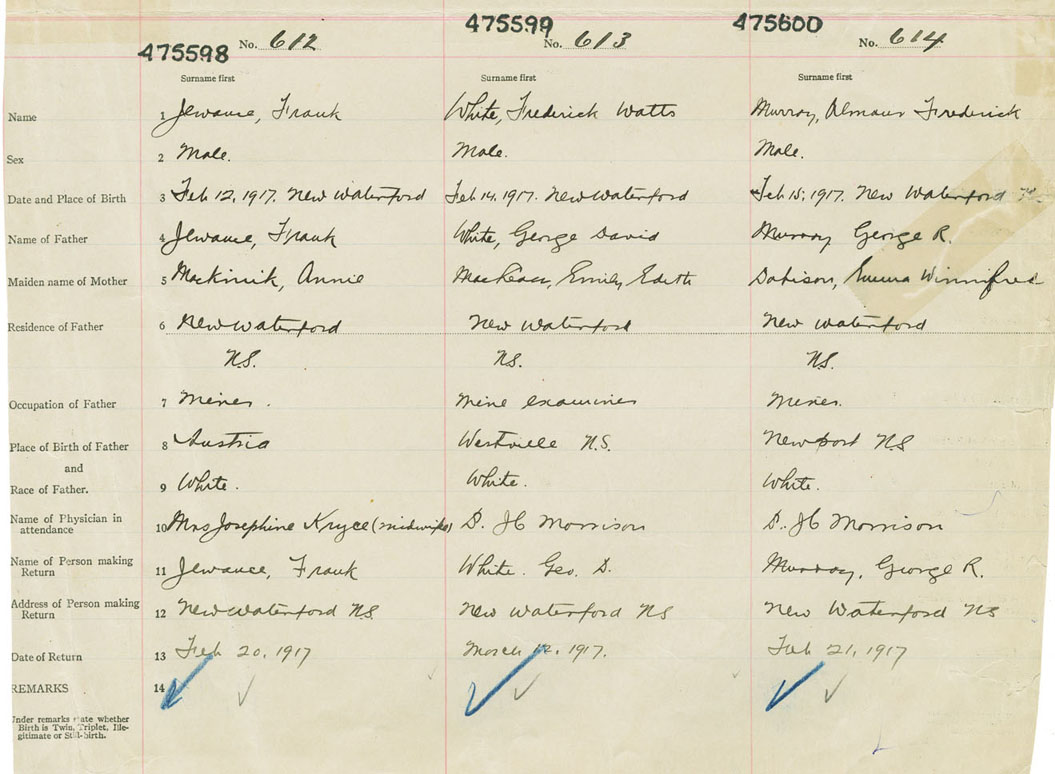 475598 No. 612 475599 No. 613 475600 No. 614
Surname first Surname first Surname first
Name 1 Frank White, Frederick Watts Murray, Frederick
Sex 2 Male. Male. Male.
Date and Place of Birth 3 Feb 12, 1917. New Waterford Feb 14, 1917. New Waterford Feb 15, 1917. New Waterford
Name of Father 4 Frank White, George David Murray George R.
Maiden name of Mother 5 Annie Emily Edith Emma Winnifred
Residence of Father 6 New Waterford New Waterford New Waterford
N.S. N.S. N.S.
Occupation of Father 7 Miner. Mine examiner Miner.
Place of Birth of Father 8 Austria Westville N.S. Newport NS
and
Race of Father. 9 White. White. White.
Name of Physician in
attendance 10 Mrs Josephine Kryce (midwife) D. Morrison D. Morrison
Name of Person making
Return 11 Frank White. Geo. D. Murray, George R.
Address of Person making
Return 12 New Waterford N.S. New Waterford NS New Waterford NS
Date of Return 13 Feb 20, 1917 March 12, 1917. Feb 21, 1917
REMARKS 14
Under remarks state whether
Birth is Twin, Triplet, Ille-
gitimate or Still-birth.